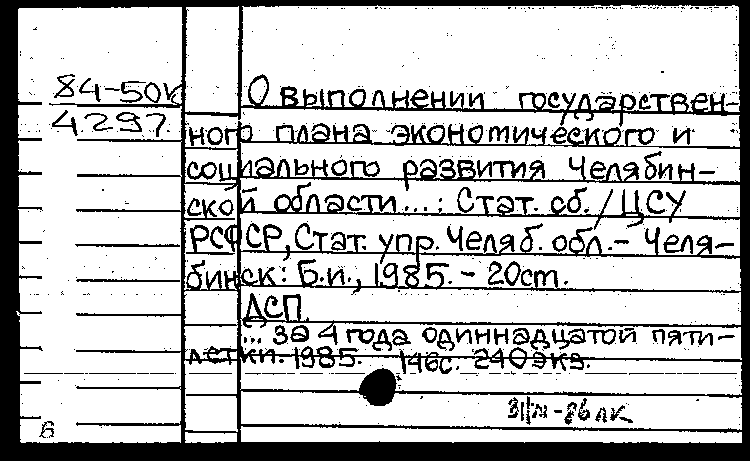 84-50К
4297
О выполнении государствен-
ного плана экономического и
социального развития Челябин-
ской области...: Стат. сб. / ЦСУ
РСФСР, Стат. упр. Челяб. обл. - Челя-
бинск: Б.и., 1985. - 20ст.
ДСП.
... за 4 года одиннадцатой пяти-
летки. 1985. 146с. 240экз.
-86 лк
6